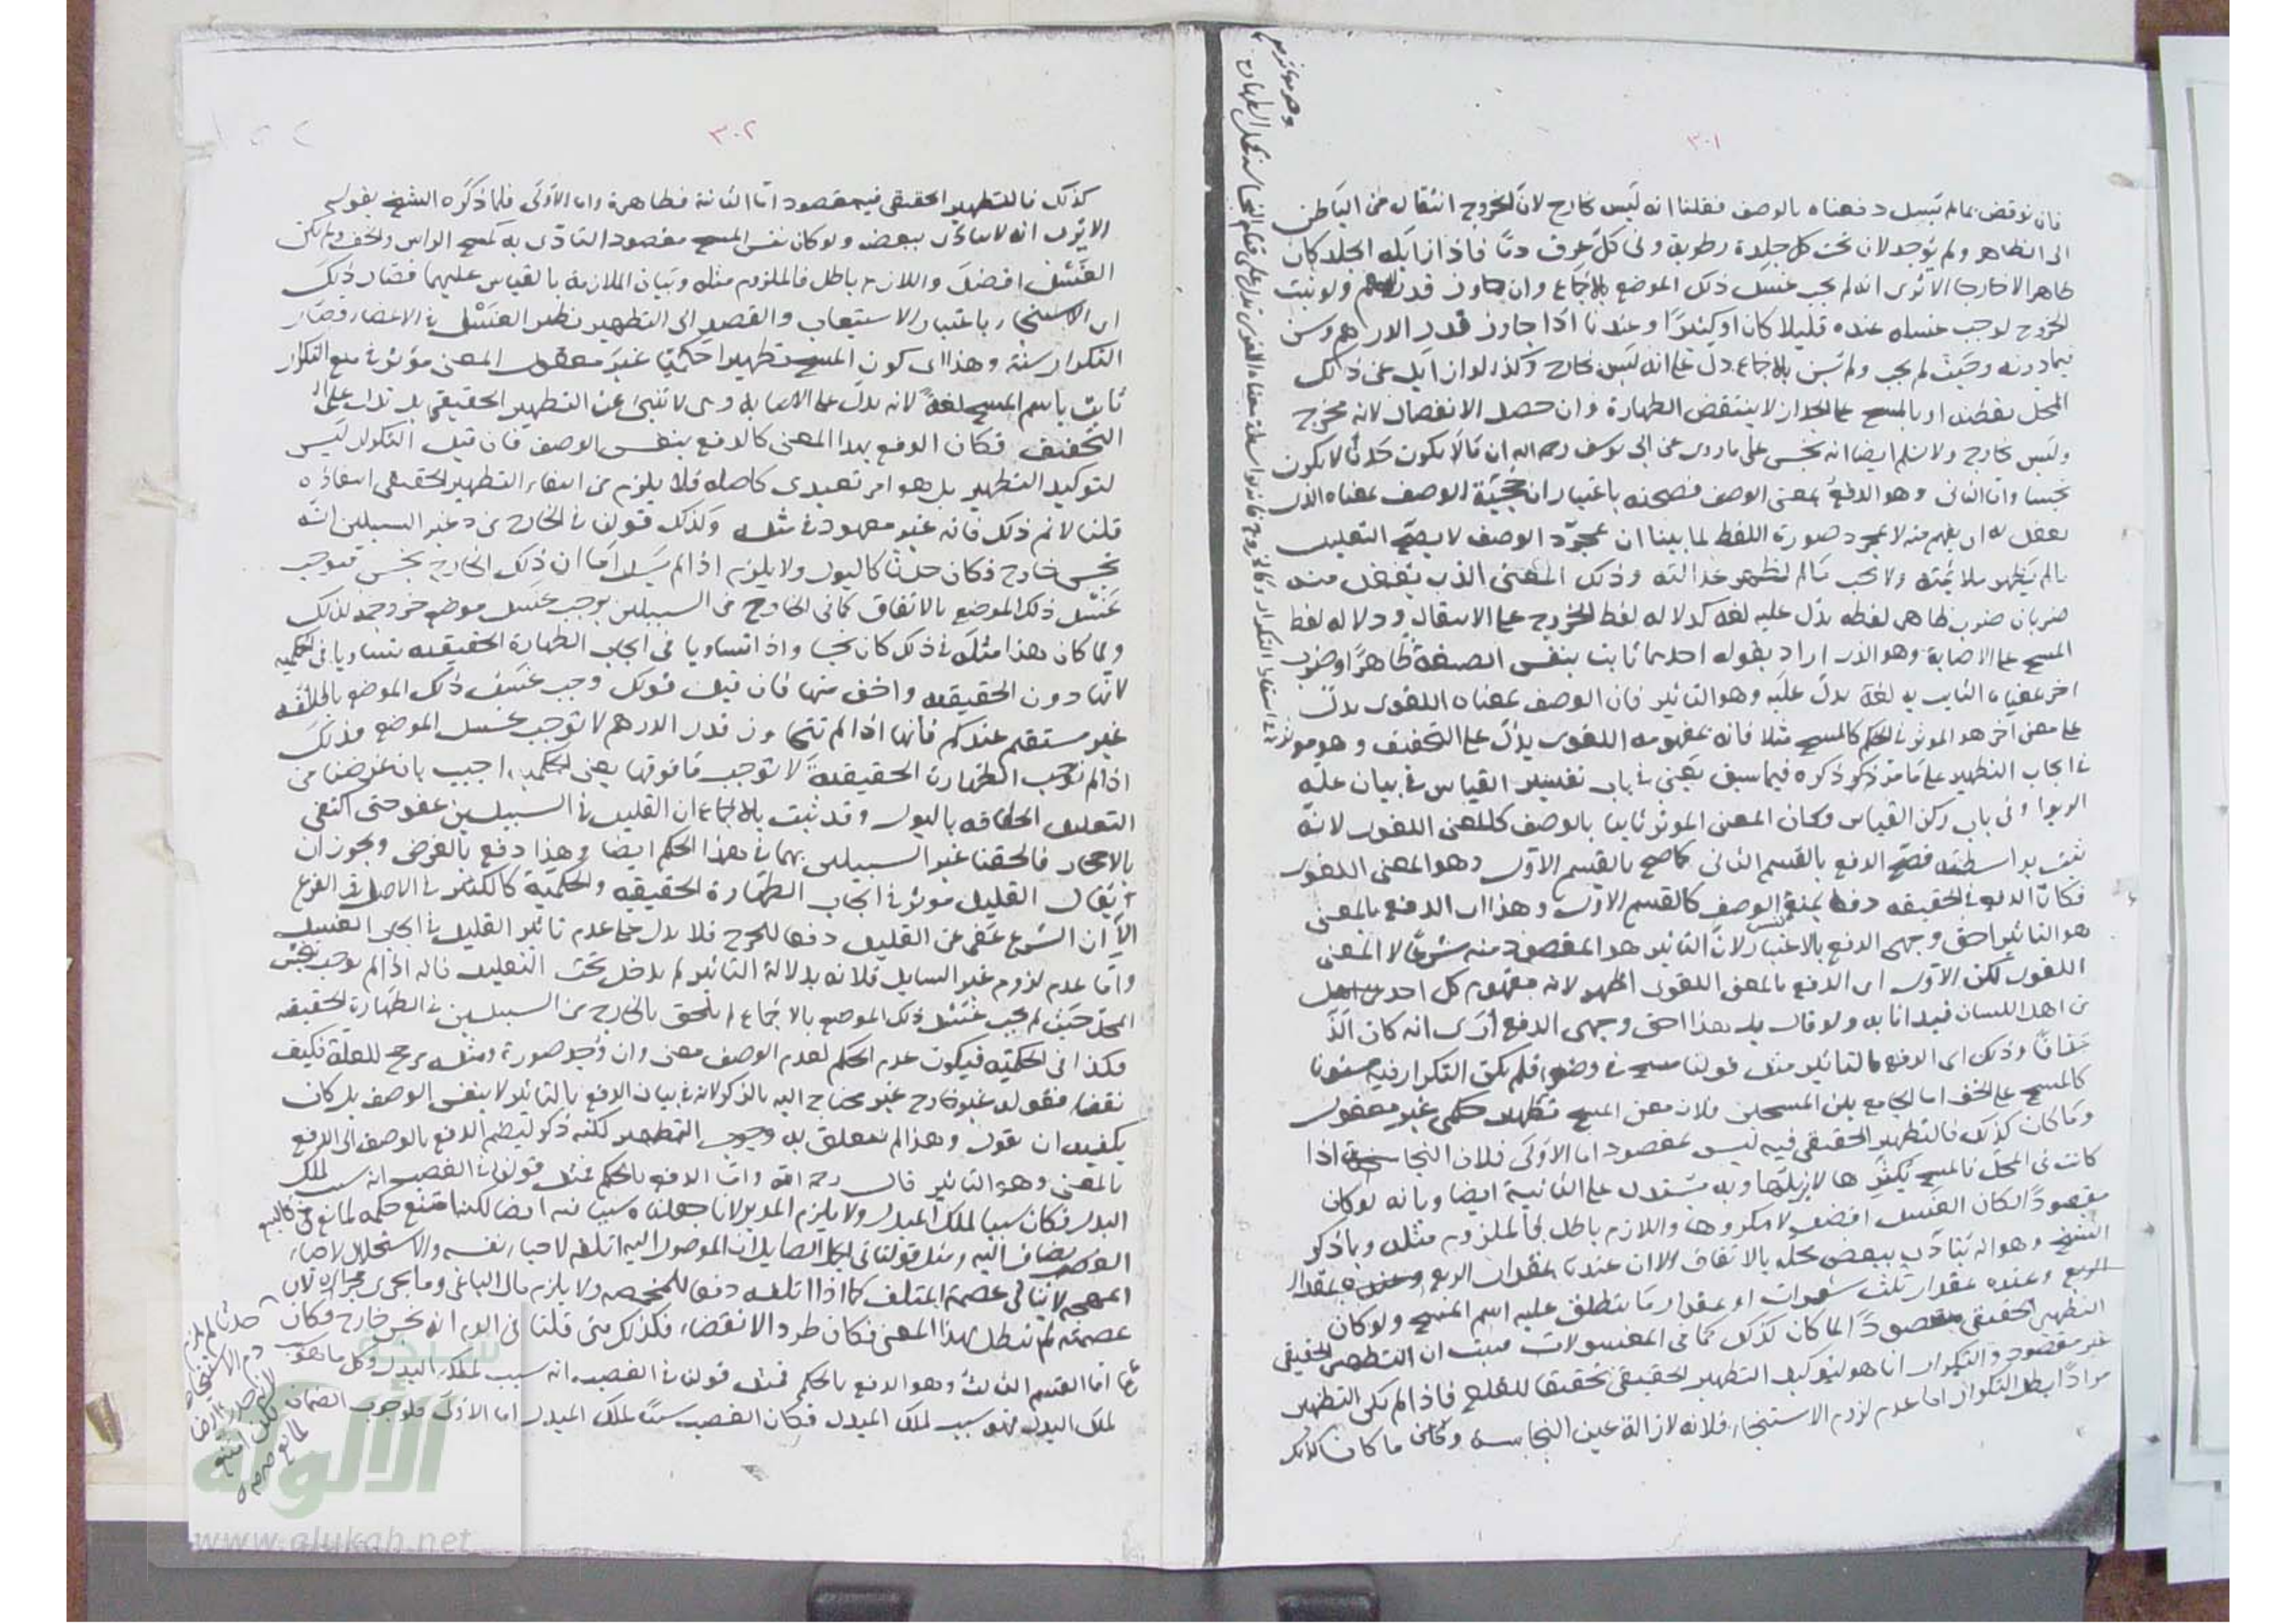 ٣٠١
فان نوقض بما لم يسل دفعناه بالوصف فقلنا انه ليس بخارج لان الخروج انتقال من الباطن
الى الظاهر ولم يوجد لان تحت كل جلدة رطوبة وفي كل عرق دما فاذا زايله الجلد كان
ظاهرا لا خارجا الا ترى انه لم يجب غسل ذلك الموضع بالاجماع وان جاوز قدر الدرهم ولو ثبت
الخروج لوجب غسله عنده قليلا كان او كثيرا وعندنا اذا جاوز قدر الدرهم وسن
فيما دونه وحيث لم يجب ولم يسن بالاجماع دل على انه ليس بخارج وكذا لو ازيل عن ذلك
المحل بقطنه او بالمسح على الجدار لا ينتقض الطهارة وان حصل الانفصال لانه مخرج
وليس بخارج ولا نسلم ايضا انه نجس على ما روي عن ابي يوسف رحمه الله ان ما لا يكون حدثا لا يكون
نجسا واما الثاني وهو الدفع بمعنى الوصف فصحته باعتبار ان حجية الوصف بمعناه الذي
يعقل له اي يفهم منه لا بمجرد صورة اللفظ لما بينا ان مجرد الوصف لا يصح التعليل
ما لم يظهر ملايمته ولا يجب ما لم تظهر عدالته وذلك المعنى الذي يفعل منه
ضربان ضرب ظاهر لفظه يدل عليه لغة كدلالة لفظ الخروج على الانتقال ودلالة لفظ
المسح على الاصابة وهو الذي اراد بقوله احدهما ثابت بنفس الصيغة ظاهرا وضرب
اخر بمعناه الثابت به لغة يدل عليه وهو التاثير فان الوصف بمعناه اللغوي يدل
على معنى اخر هو الموثر في الحكم كالمسح مثلا فانه بمفهومه اللغوي يدل على التخفيف وهو موثر
في ايجاب التطهير على ما مر ذكر ذكره فيما سبق يعني في باب تفسير القياس في بيان علة
الربوا وفي باب ركن القياس وكان المعنى الموثر ثابتا بالوصف كالمعنى اللغوي لانه
ثبت بواسطته فصح الدفع بالقسم الثاني كما صح بالقسم الاول وهو المعنى اللغوي
فكان الدفع في الحقيقة دفعا بنفس الوصف كالقسم الاول وهذا اي الدفع بالمعنى
هو التاثير احق وجهي الدفع بالاعتبار لان التاثير هو المقصود منه شرعا لا المعنى
اللغوي لكن الاول اي الدفع بالمعنى اللغوي اظهر لانه مفهوم كل احد من اهل
من اهل اللسان فبدانا به ولو قال بل هذا احق وجهي الدفع ارى انه كان الذ
مذاقا وذلك اي الدفع بالتاثير مثل قولنا مسح في وضوء فلم يكن التكرار فيه مسنونا
كالمسح على الخف اما الجامع بين المسحين فلان معنى المسح تطهير حكمي غير معقول
وما كان كذلك فالتطهير الحقيقي فيه ليس بمقصود اما الاولى فلان النجاسة اذا
كانت في المحل فالمسح يكثرها لا يزيلها وبه يستدل على الثانية ايضا وبانه لو كان
مقصودا لكان الغسل افضل لا مكروها واللازم باطل فالملزوم مثله وبما ذكر
الشيخ وهو انه يتادى ببعض محله بالاتفاق الا ان عندنا بمقدار الربع وعنده بمقدار
الربع وعنده بمقدار ثلث شعرات او بمقدار ما ينطلق عليه اسم المسح ولو كان
التطهير الحقيقي مقصودا لما كان كذلك كما في المغسولات فثبت ان التطهير الحقيقي
غير مقصود والتكرار انما هو لتوكيد التطهير الحقيقي تحقيقا للقلع فاذا لم يكن التطهير
مرادا بطل التكرار اما عدم لزوم الاستنجاء فلانه لازالة عين النجاسة وكل ما كان كذلك
٣٠٢
كذلك فالتطهير الحقيقي فيه مقصود اما الثانية فظاهرة واما الاولى فلما ذكره الشيخ بقوله
الا يرى انه لا يتادى ببعضه ولو كان نفس المسح مقصود التادى به كمسح الراس والخف ولم يكن
الغسل افضل واللازم باطل فالملزوم مثله وبيان الملازمة بالقياس عليهما فصار ذلك
اي الاستنجاء باعتبار الاستيعاب والقصد الى التطهير نظير الغسل في الاعضاء وصار
التكرار سنة وهذا اي كون المسح تطهيرا حكميا غير معقول المعنى موثر في منع التكرار
ثابت باسم المسح لغة لانه يدل على الاصابة وهي لا تنبئ عن التطهير الحقيقي بل تدل على
التخفيف فكان الدفع بهذا المعنى كالدفع بنفس الوصف فان قيل التكرار ليس
لتوكيد التطهير بل هو امر تعبدي كاصله فلا يلزم من انتفاء التطهير الحقيقي انتفاؤه
قلنا لا نم ذلك فانه غير معهود في مثله وكذلك قولنا في الخارج من غير السبيلين انه
نجس خارج فكان حدثا كالبول ولا يلزم اذا لم يسل اما ان ذلك الخارج نجس فيوجب
غسل ذلك الموضع بالاتفاق كما في الخارج من السبيلين يوجب غسل موضع خروجه لذلك
ولما كان هذا مثله في ذلك كان نجسا واذا تساويا في ايجاب الطهارة الحقيقة يتساويا في الحكمية
لانها دون الحقيقة واخف منها فان قيل قولك وجب غسل ذلك الموضع باطلاقه
غير مستقيم عندكم فانها اذا لم تتجاوز قدر الدرهم لا توجب غسل الموضع فذلك
اذا لم توجب الطهارة الحقيقة لا توجب ما فوقها يعني الحكمية اجيب بان غرضنا من
التعليل الحاقه بالبول وقد ثبت بالاجماع ان القليل في السبيلين عفو حتى اكتفى
بالاحجار فالحقنا غير السبيلين بهما في هذا الحكم ايضا وهذا دفع بالغرض ويجوز ان
يقال القليل موثر في ايجاب الطهارة الحقيقة والحكمية كالكثير في الاصل وفي الفرع
الا ان الشرع عفى عن القليل دفعا للحرج فلا يدل على عدم تاثير القليل في ايجاب الغسل
واما عدم لزوم غير السايل فلانه بدلالة التاثير لم يدخل تحت التعليل فانه اذا لم يوجب تنجس
المحل حيث لم يجب غسل ذلك الموضع بالاجماع لم يلحق بالخارج من السبيلين في الطهارة الحقيقة
فكذا في الحكمية فيكون عدم الحكم لعدم الوصف معنى وان وجد صورة ومثله مرجح للعلة فكيف
نقضا فقوله غير خارج غير محتاج اليه بالذكر لانه في بيان الدفع بالتاثير لا بنفس الوصف بل كان
يكفيه ان يقول وهذا لم يتعلق به وجوب التطهير لكنه ذكر ليضم الدفع بالوصف الى الدفع
بالمعنى وهو التاثير قال رحمه الله واما الدفع بالحكم فمثل قولنا في الغصب انه سبب لملك
البدل فكان سببا لملك المبدل ولا يلزم المدبر لانا جعلناه سببا فيه ايضا لكنه امتنع حكمه لمانع كالبيع
يضاف اليه ومثل قولنا في الجمل الصايل ان المصول اليه اتلفه لاحياء نفسه والاستحلال لاحياء
المهجة لا ينافي عصمة المتلف كما اذا اتلفه دفعا للمخمصة ولا يلزم مال الباغي وما يجري مجراه لان
عصمته لم تبطل بهذا المعنى فكان طردا لا نقضا وكذلك متى قلنا في الدم انه نجس خارج فكان
اما القسم الثالث وهو الدفع بالحكم فمثل قولنا في الغصب انه سبب لملك البدل وكل ما هو
لملك البدل فهو سبب لملك المبدل فكان الغصب سببا لملك المبدل اما الاولى فلوجوب الضمان
حدثا لم يلزم
دم الاستحاضة
لانه حدث ايضا
لكن امتنع
لمانع
www.alukah.net
الألوكة